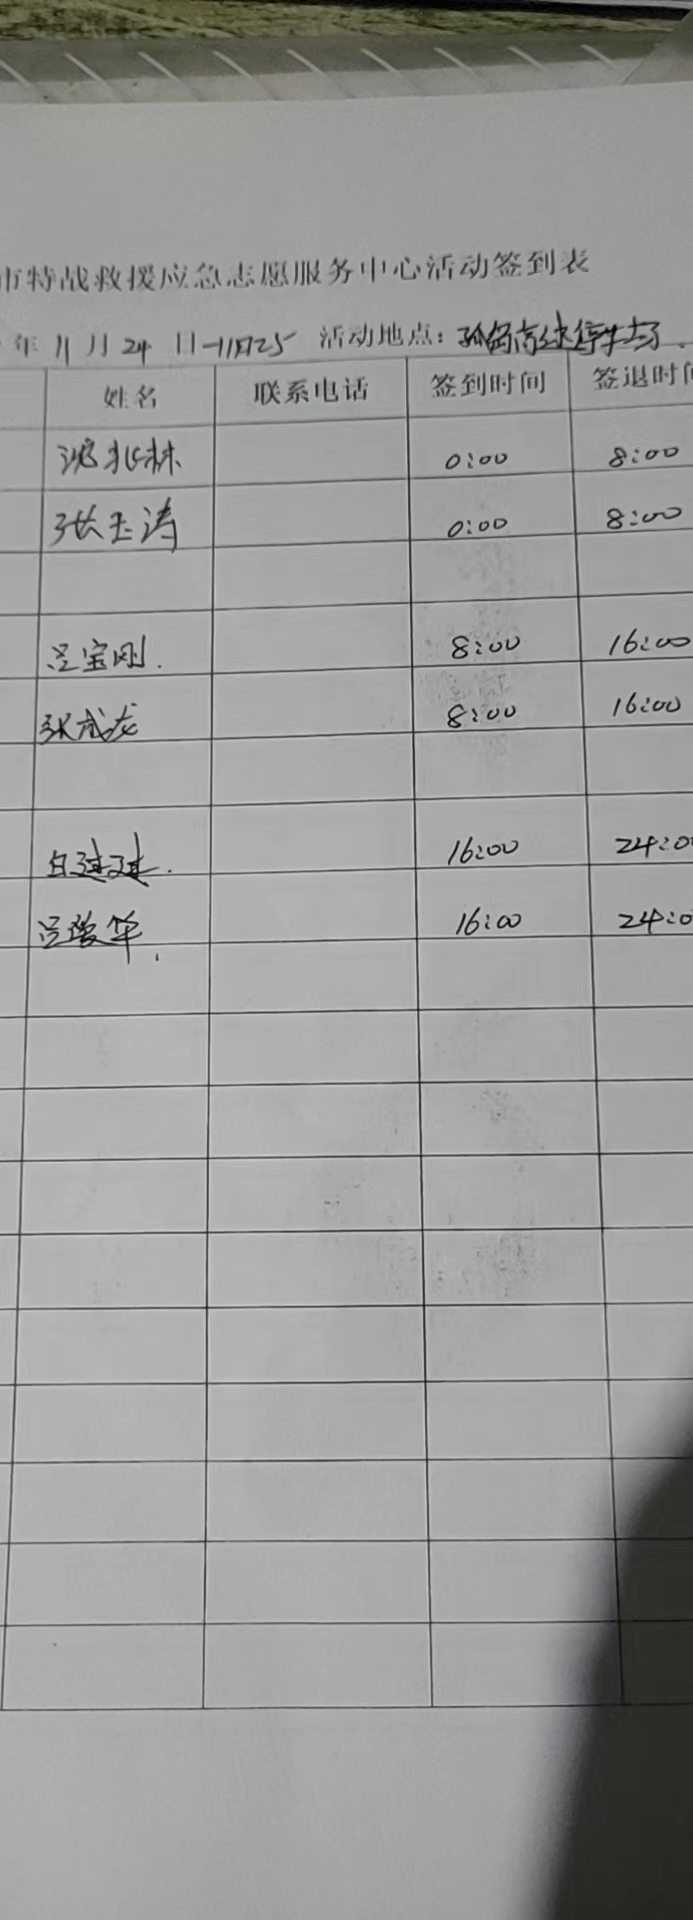 市特战救援应急志愿服务中心活动签到表
年 11 月 24 日-11月25 活动地点:
姓名 联系电话 签到时间 签退时间
兆林 0:00 8:00
张玉涛 0:00 8:00
吕宝刚. 8:00 16:00
张成龙 8:00 16:00
白 16:00 24:0
吕 华. 16:00 24:0